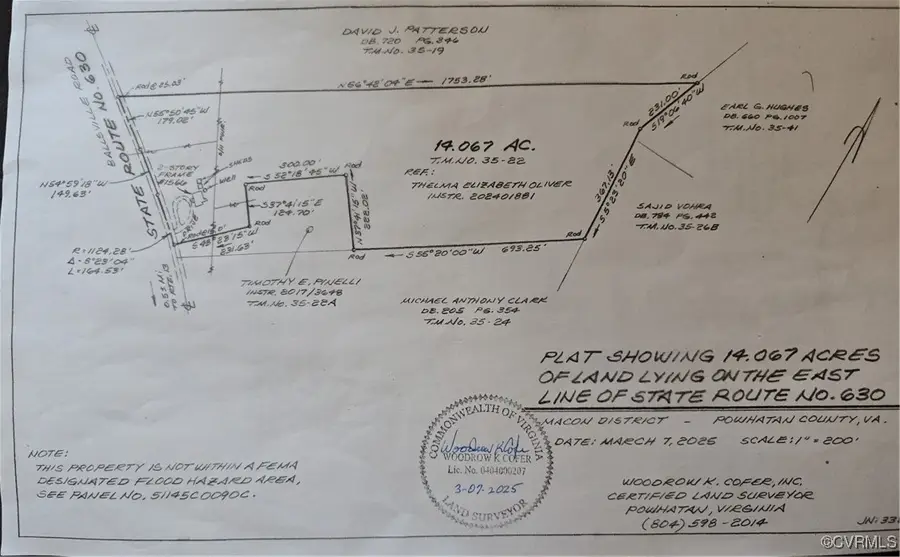 DAVID J. PATTERSON
DB. 720 PG. 346
T.M. NO. 35-19
BALLSVILLE ROAD
STATE ROUTE NO. 630
Rod @ 25.03'
N 56°42'04" E 1753.28'
Rod
N 55°50'45" W
179.02'
231.00'
S 19°04'40" W
Rod
EARL G. HUGHES
DB. 660 PG. 1007
T.M. NO. 35-41
14.067 AC.
T.M. NO. 35-22
REF.:
THELMA ELIZABETH OLIVER
INSTR. 202401881
2-STORY
FRAME
#1566
SHEDS
Well
DRIVE
N 54°59'18" W
149.63'
300.00'
S 52°18'45" W
Rod
Rod
S 37°41'15" E
124.70'
Rod
N 37°41'15" W
322.02'
367.13'
S 5°23'20" E
SAJID VOHRA
DB. 794 PG. 442
T.M. NO. 35-26B
R = 1124.28'
Δ = 8°23'04"
L = 164.53'
S 48°23'15" W
231.63'
Rod
S 56°20'00" W 693.25'
Rod
0.53 MI.
TO RTE. 13
TIMOTHY E. PINELLI
INSTR. 2017/3648
T.M. NO. 35-22A
MICHAEL ANTHONY CLARK
DB. 205 PG. 354
T.M. NO. 35-24
PLAT SHOWING 14.067 ACRES
OF LAND LYING ON THE EAST
LINE OF STATE ROUTE NO. 630
MACON DISTRICT - POWHATAN COUNTY, VA.
DATE: MARCH 7, 2025 SCALE: 1" = 200'
COMMONWEALTH OF VIRGINIA
Woodrow K. Cofer
WOODROW K. COFER
Lic. No. 0404000207
3-07-2025
LAND SURVEYOR
NOTE:
THIS PROPERTY IS NOT WITHIN A FEMA
DESIGNATED FLOOD HAZARD AREA,
SEE PANEL NO. 51145C0090C.
WOODROW K. COFER, INC.
CERTIFIED LAND SURVEYOR
POWHATAN, VIRGINIA
(804) 598-2014
JN: 33
©CVRMLS